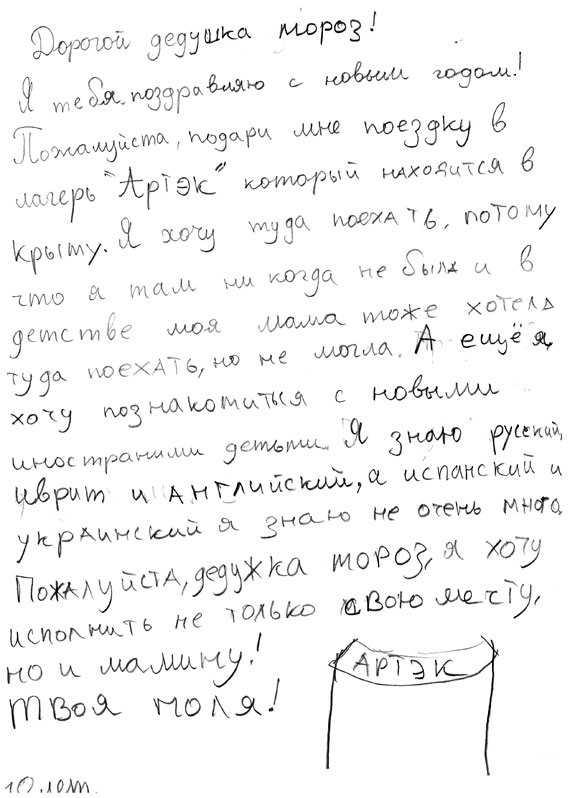 Дорогой дедушка мороз!
Я тебя поздравляю с новым годом!
Пожалуйста, подари мне поездку в
лагерь "Артэк" который находится в
Крыму. Я хочу туда поехать, потому
что я там ни когда не была и в
детстве моя мама тоже хотела
туда поехать, но не могла. А ещё я
хочу познакомиться с новыми
иностраними детьми. Я знаю русский,
иврит и английский, а испанский и
украинский я знаю не очень много.
Пожалуйста, дедужка мороз, я хочу
исполнить не только свою мечту,
но и мамину!
Твоя поля!
АРТЭК
10 лет.